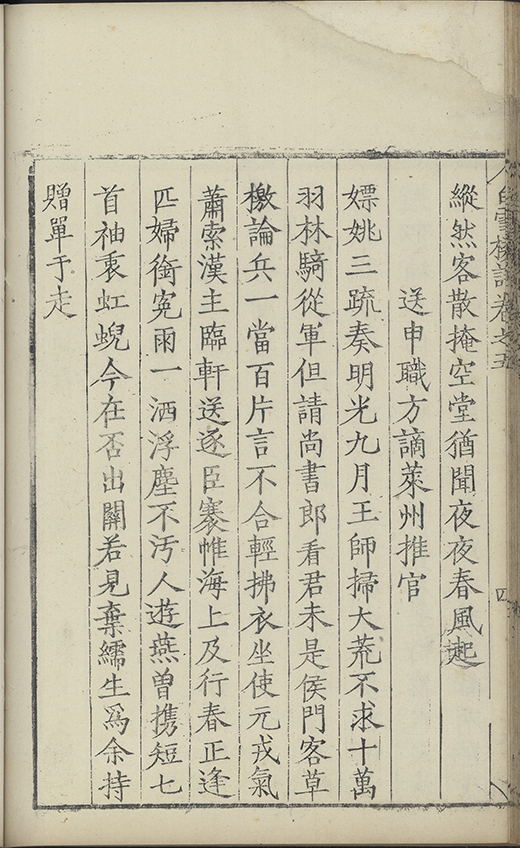 白雪樓詩卷之五
四
縱然客散掩空堂猶聞夜夜春風起
送申職方謫萊州推官
嫖姚三疏奏明光九月王師掃大荒不求十萬
羽林騎從軍但請尚書郎看君未是侯門客草
檄論兵一當百片言不合輕拂衣坐使元戎氣
蕭索漢主臨軒送逐臣褰帷海上及行春正逢
匹婦銜冤雨一洒浮塵不汚人遊燕曾携短匕
首袖裏虹蜺今在否出關若見棄繻生爲余持
贈單于走